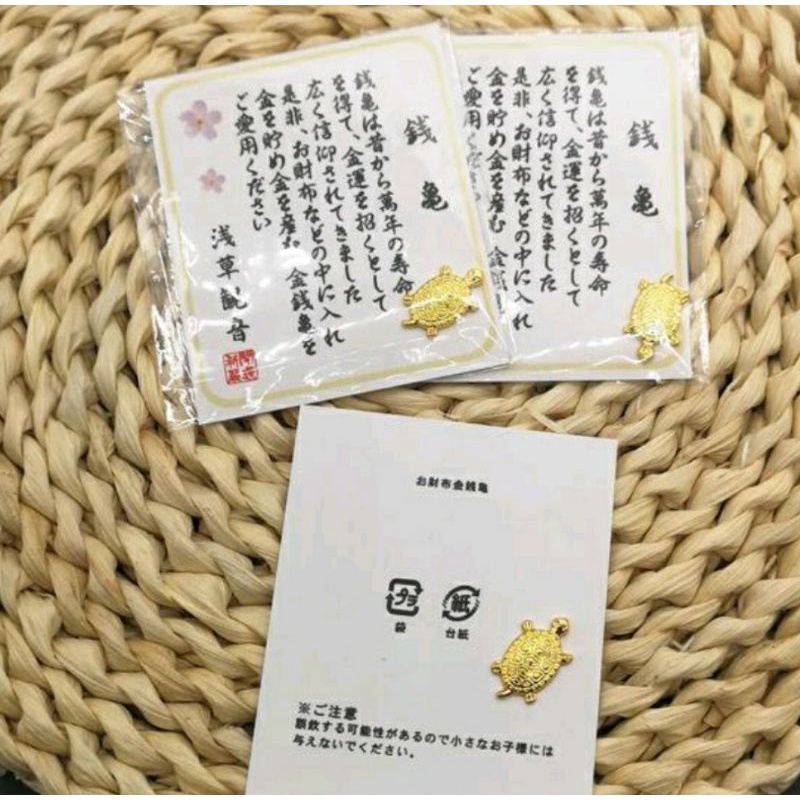 銭亀
銭亀は昔から萬年の寿命
を得て、金運を招くとして
広く信仰されてきました
是非、お財布などの中に入れ
金を貯め金を産む 金銭亀を
ご愛用ください
浅草観音
銭亀
銭亀は昔から萬年の寿命
を得て、金運を招くとして
広く信仰されてきました
是非、お財布などの中に入れ
金を貯め金を産む 金
ご愛用くださ
お財布金銭亀
プラ
袋
紙
台紙
※ご注意
誤飲する可能性があるので小さなお子様には
与えないでください。